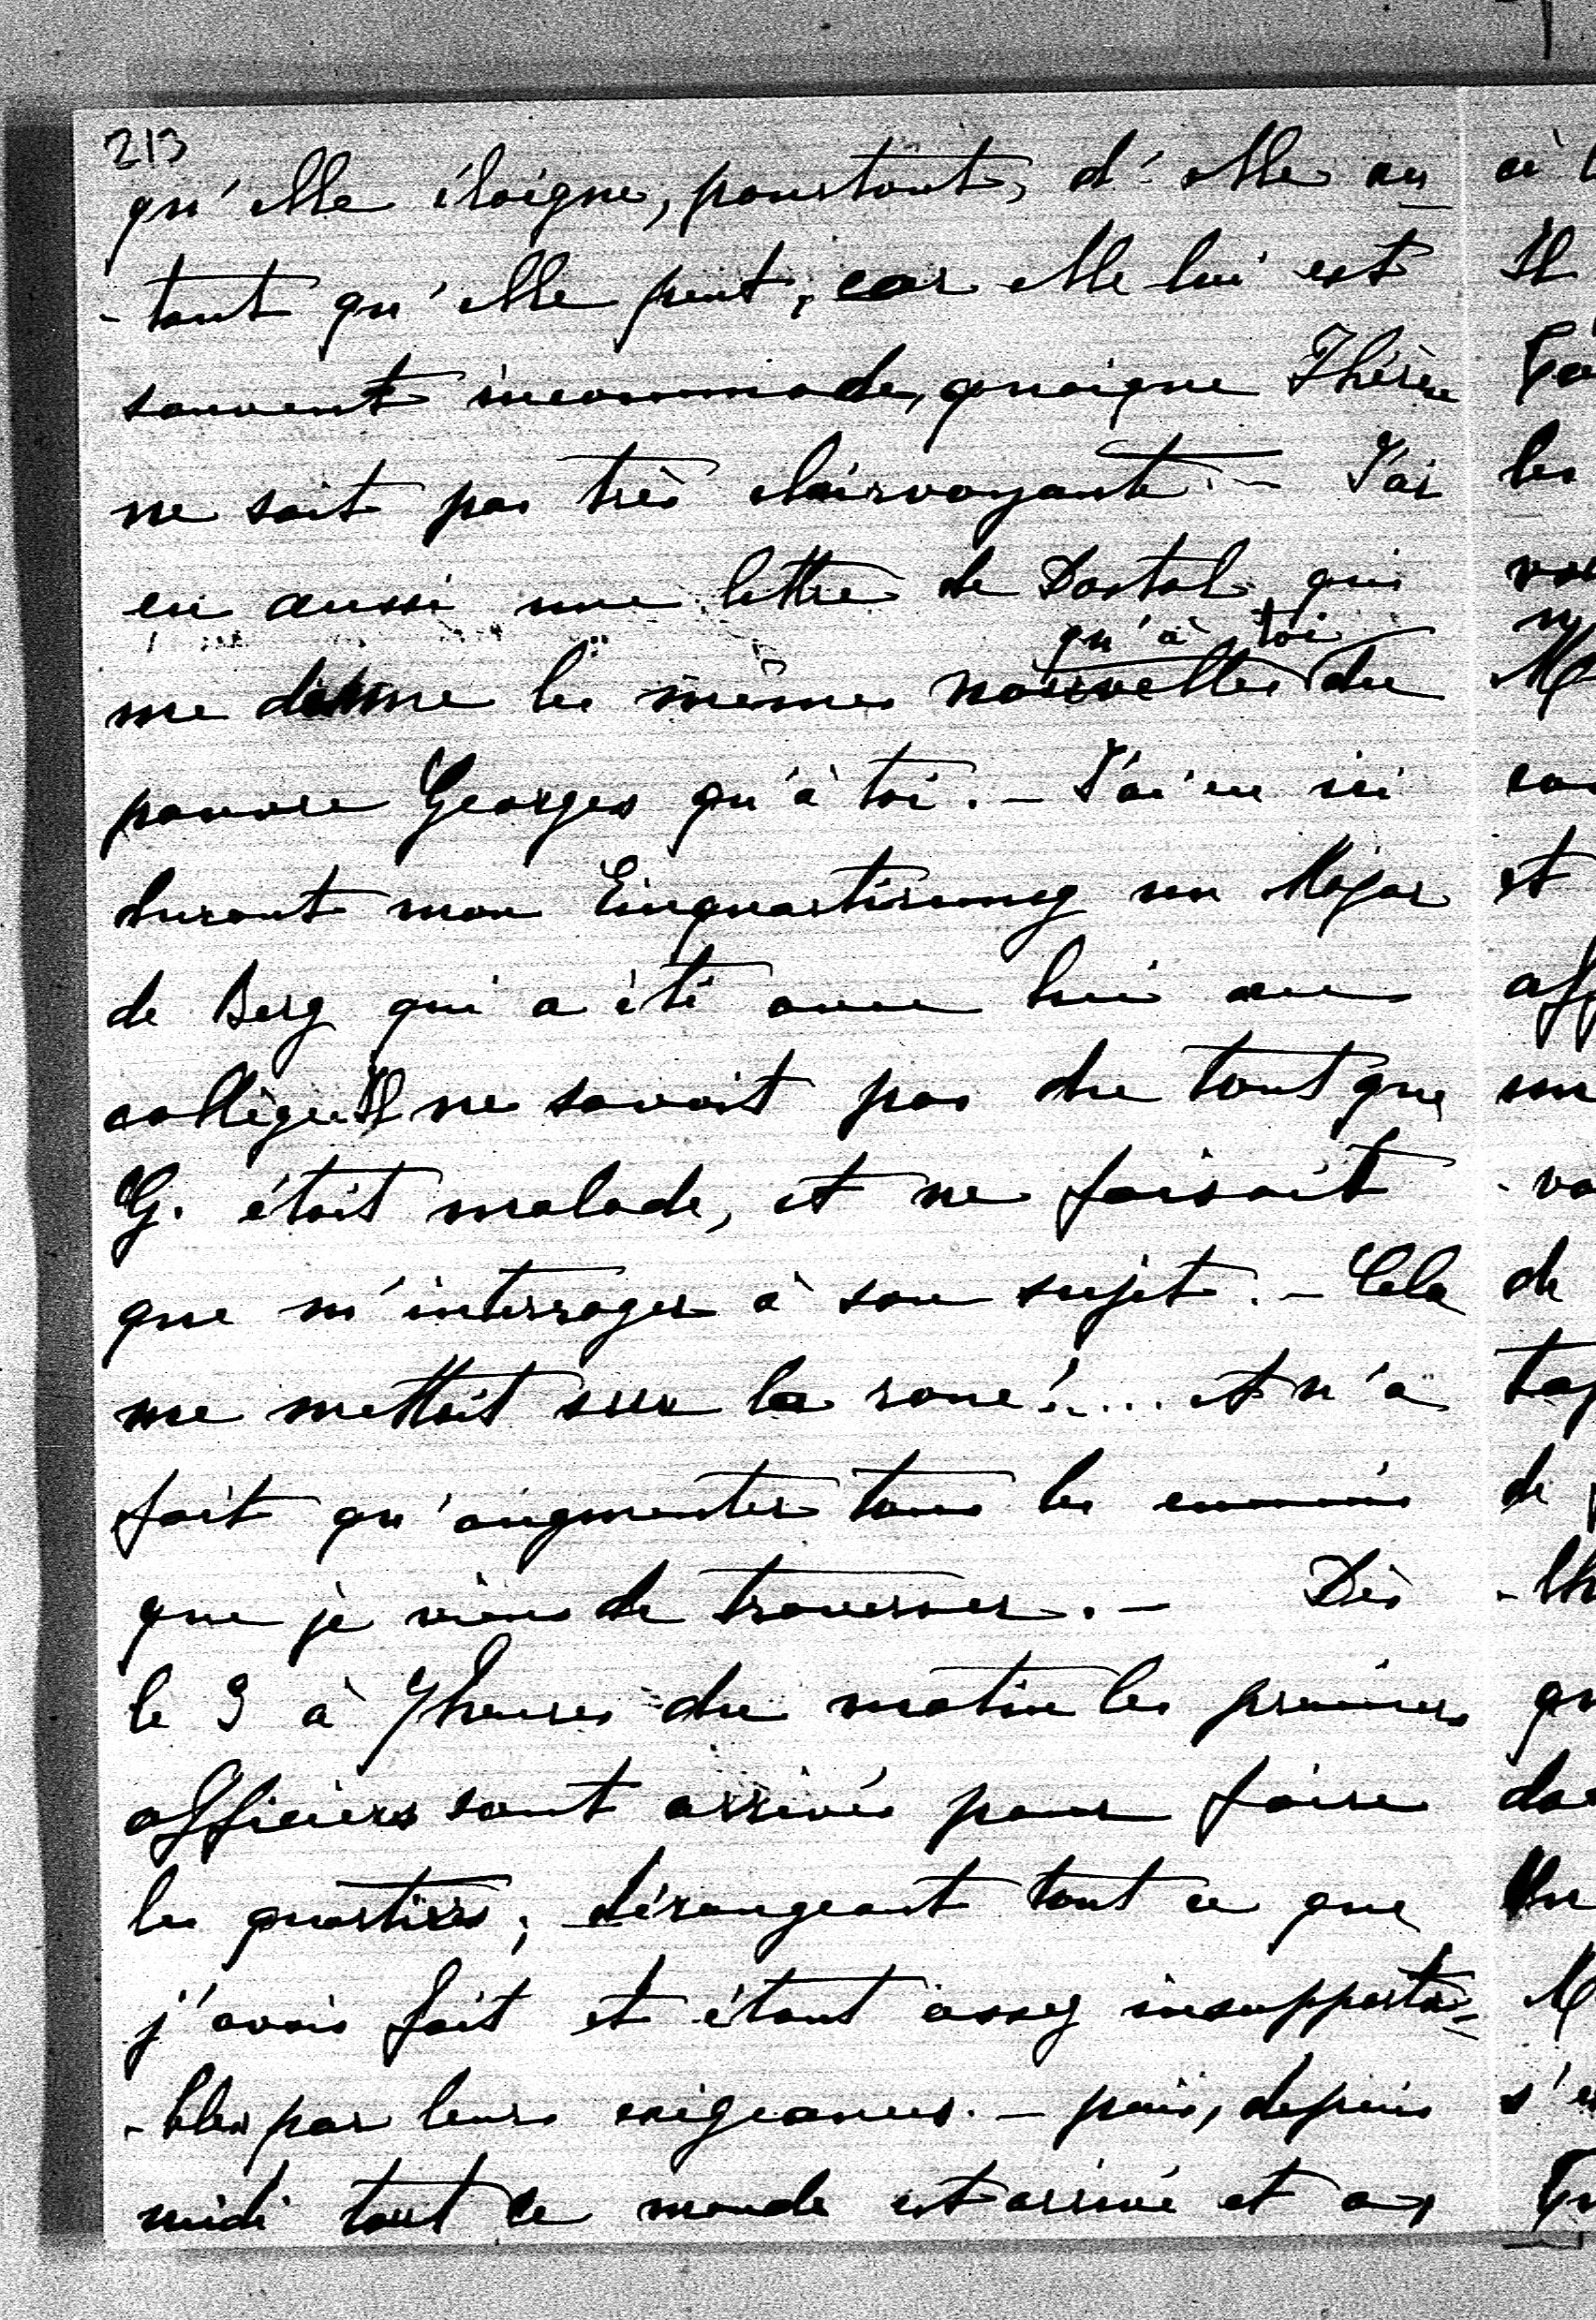 213
qu'elle éloigne, pourtant, d'elle au
-tant qu'elle peut, car elle lui est
souvent incommode, quoique Thérèse
ne soit pas très clairvoyante. - J'ai
eu aussi une lettre de Dostal qui
qu'à toi
me donne les mêmes nouvelles du
pauvre Georges qu'à toi. - J'ai eu ici
durant mon Einquartirung un Major
de Berg qui a été avec lui au
collège Il ne savait pas du tout que
G. était malade, et ne faisait
que m'interroger à son sujet. - Cela
me mettait sur la roue!.... et n'a
fait qu'augmenter tous les ennuis
que je viens de traverser. - Dès
le 3 à 7 heures du matin les premiers
officiers sont arrivés pour faire
les quartiers, dérangeant tout ce que
j'avais fait et étant assez insupporta=
-bles par leurs exigeances. - puis, depuis
midi tout le monde est arrivé et a
à
Il
les
et
de
de